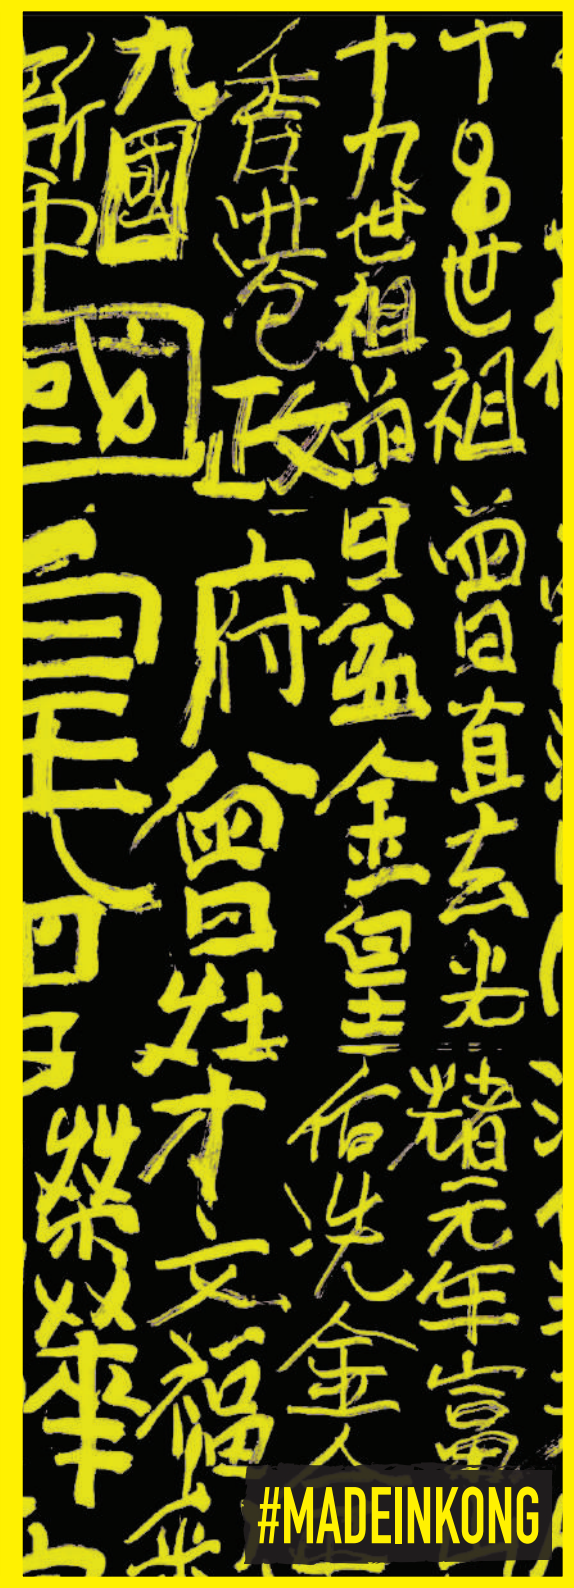 十8世祖曾直去光緒元年富
十九世祖曾盆金皇冼金
香港政府曾灶才文福
九國
新中國皇
榮華
#MADEINKONG